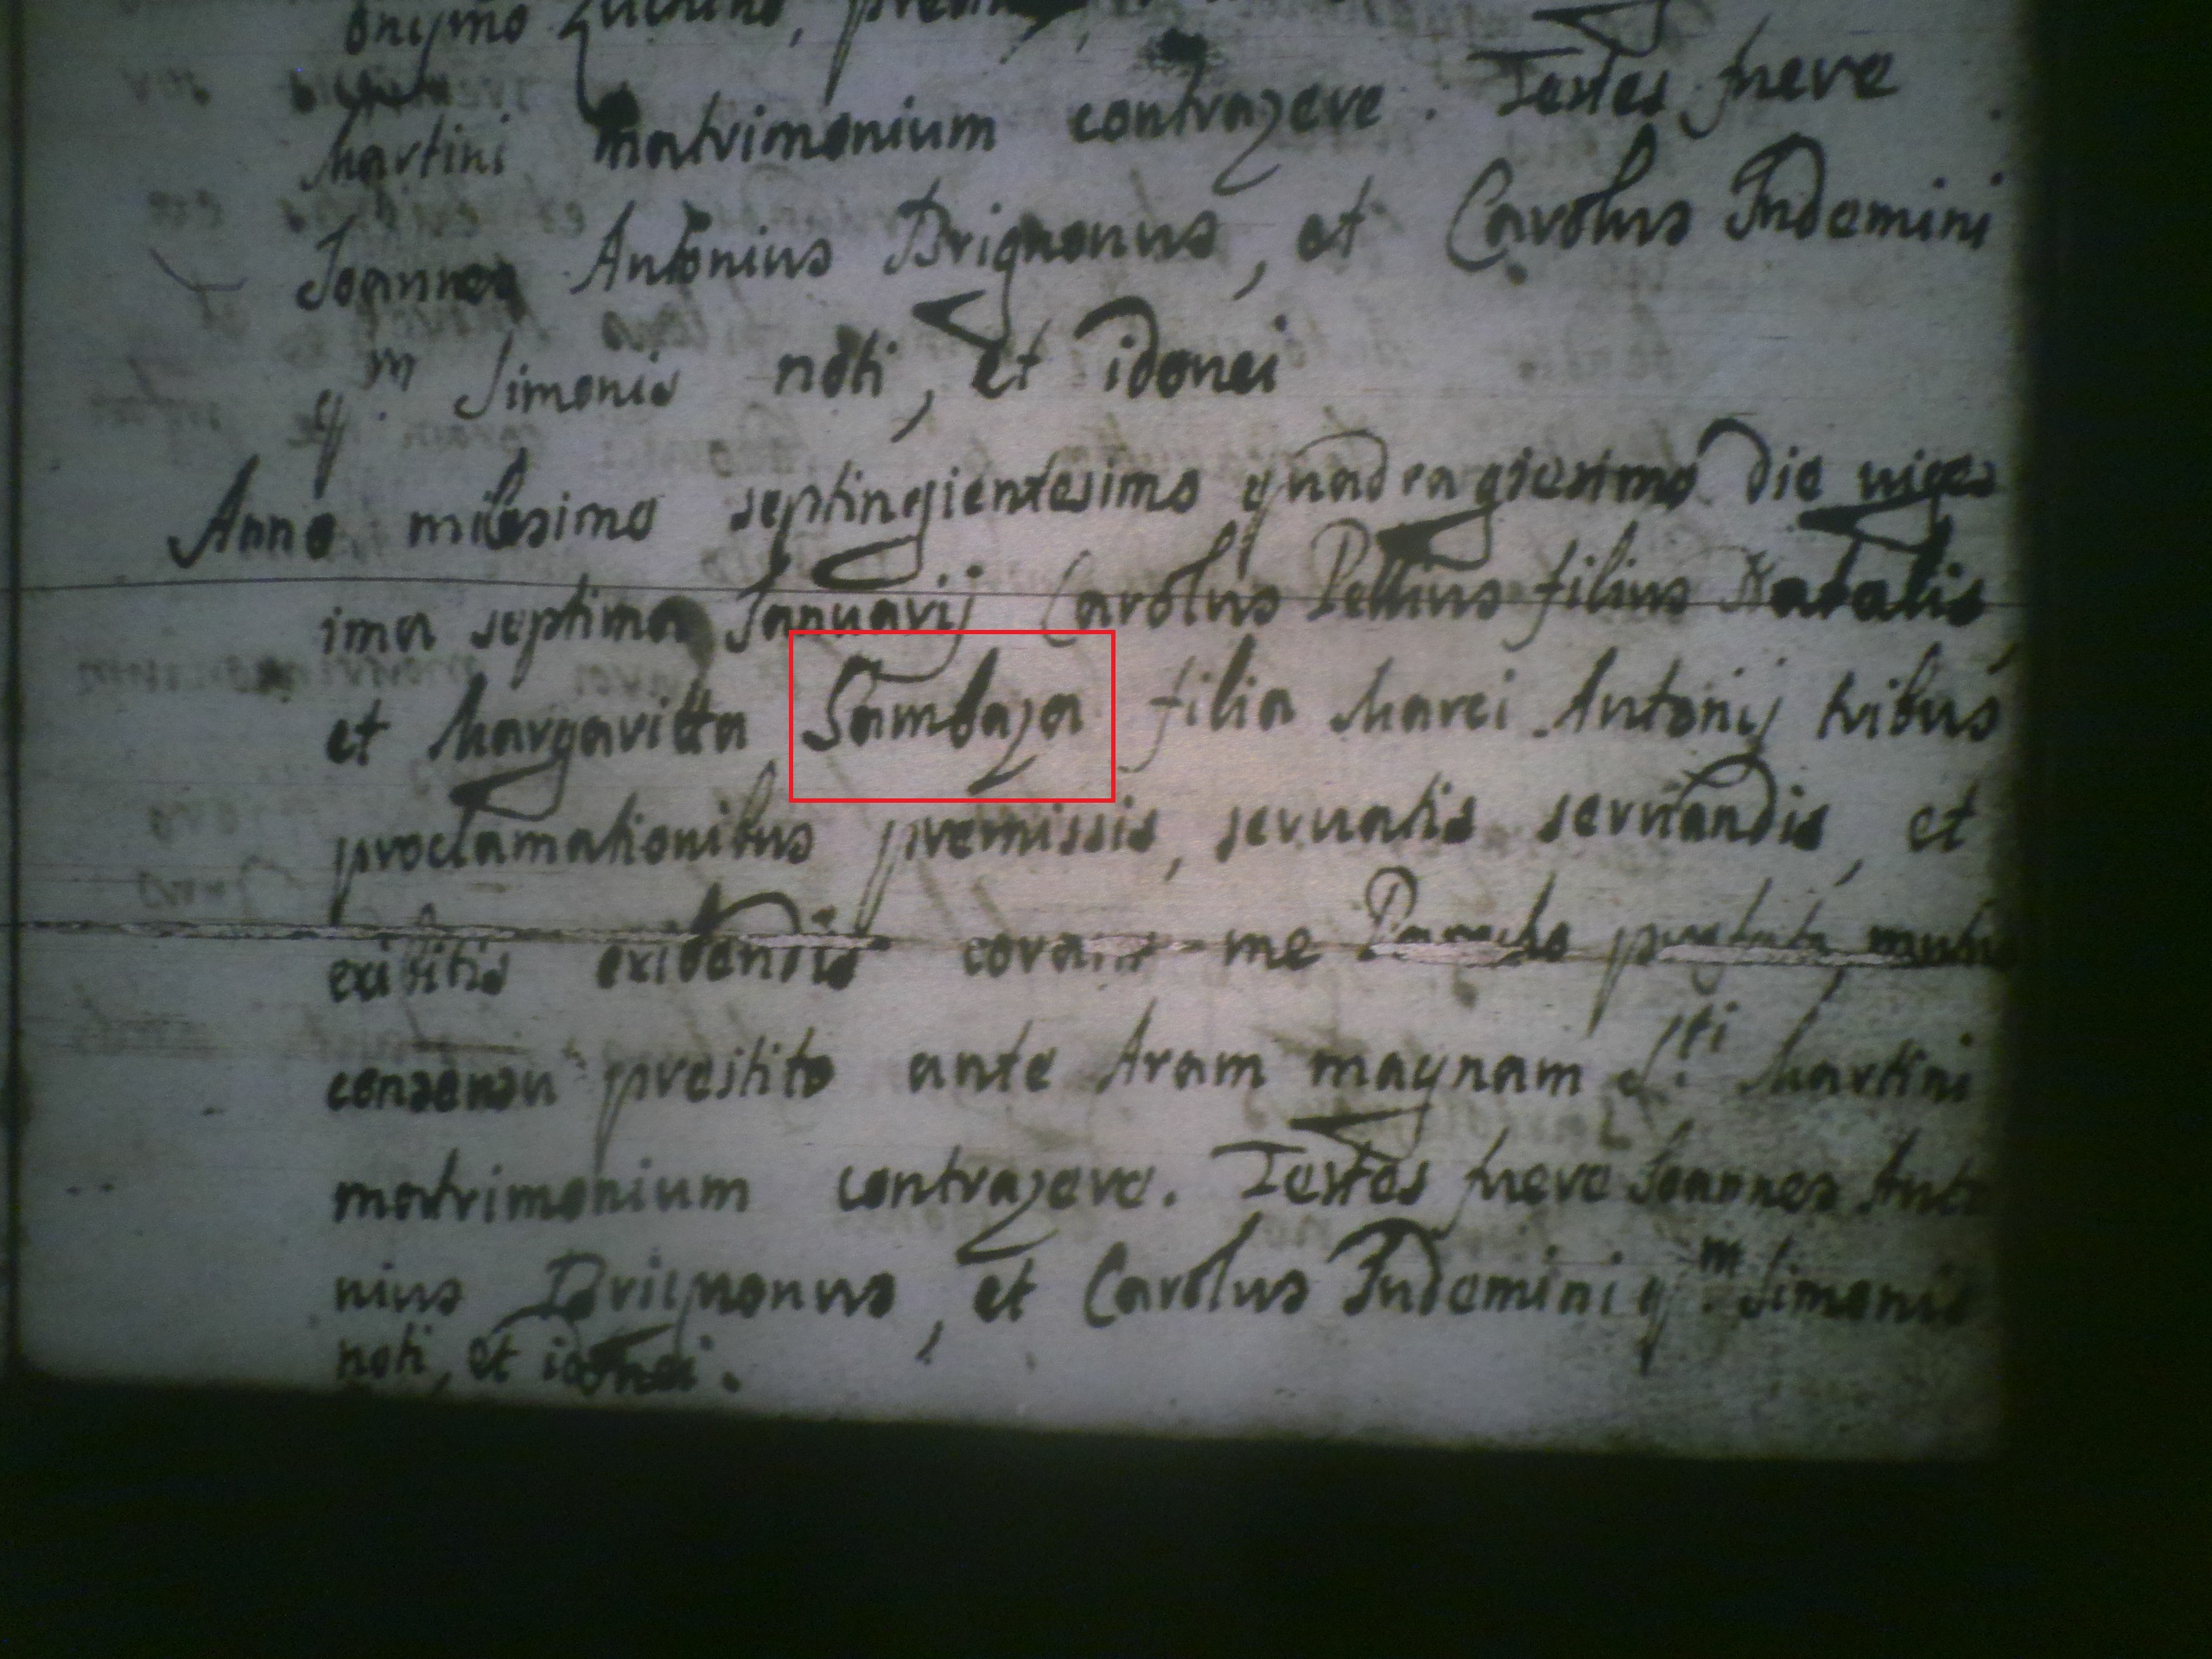 onymo
Martini matrimonium contrazere. Testes fuere
Joannes Antonius Brignonus, et Carolus Indemini
q.m Simonis noti, et idonei
Anno milesimo septingientesimo quadragiesimo die viges
ima septima Januarij Carolus Pellius filius Natalis
et Margaritta Sambaza filia Marci Antonij tribus
proclamationibus premissis, servatis servandis, et
exibitis exibendis coram me Parocho mutuo
consensu prestito ante Aram magnam S.ti Martini
matrimonium contrazere. Testes fuere Joannes Anto
nius Brignonus, et Carolus Indemini q.m Simonis
noti, et idonei.